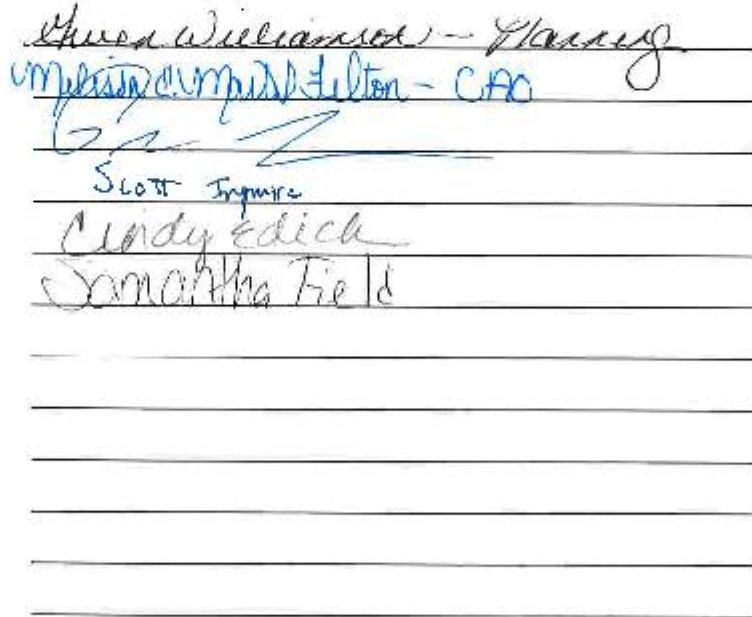 Gwen Williamson - Planning
Melissa Felton - CAO
Scott Ingmire
Cindy Edick
Samantha Field